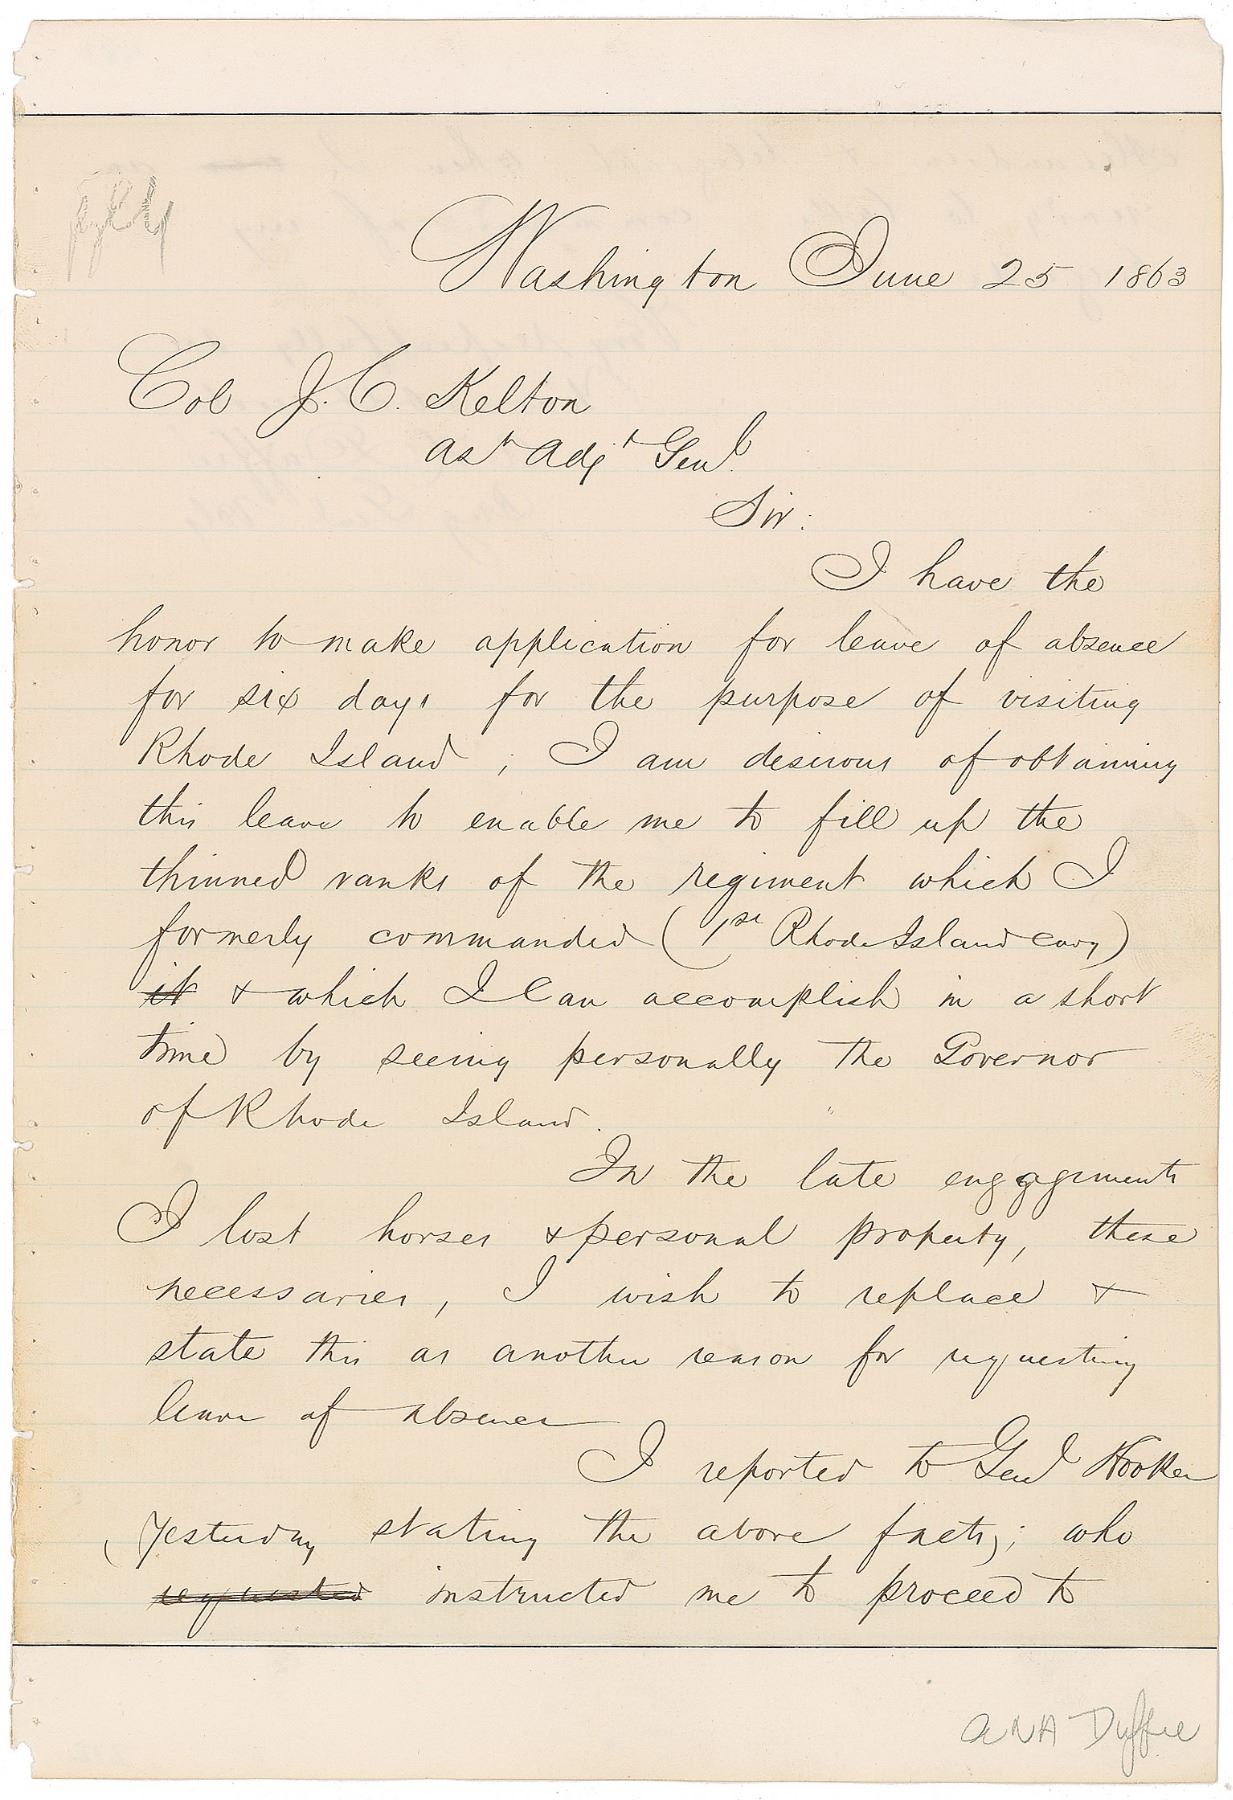 Washington June 25 1863
Col J. C. Kelton
Ast Adjt Genl.
Sir:
I have the
honor to make application for leave of absence
for six days for the purpose of visiting
Rhode Island ; I am desirous of obtaining
this leave to enable me to fill up the
thinned ranks of the regiment which I
formerly commanded (1st Rhode Island Cavy)
it & which I Can accomplish in a short
time by seeing personally the Governor
of Rhode Island.
In the late engagements
I lost horses & personal property, these
necessaries, I wish to replace &
state this as another reason for requesting
leave of absence
I reported to Genl Hooker
Yesterday stating the above facts; who
requested instructed me to proceed to
ANA Duffie